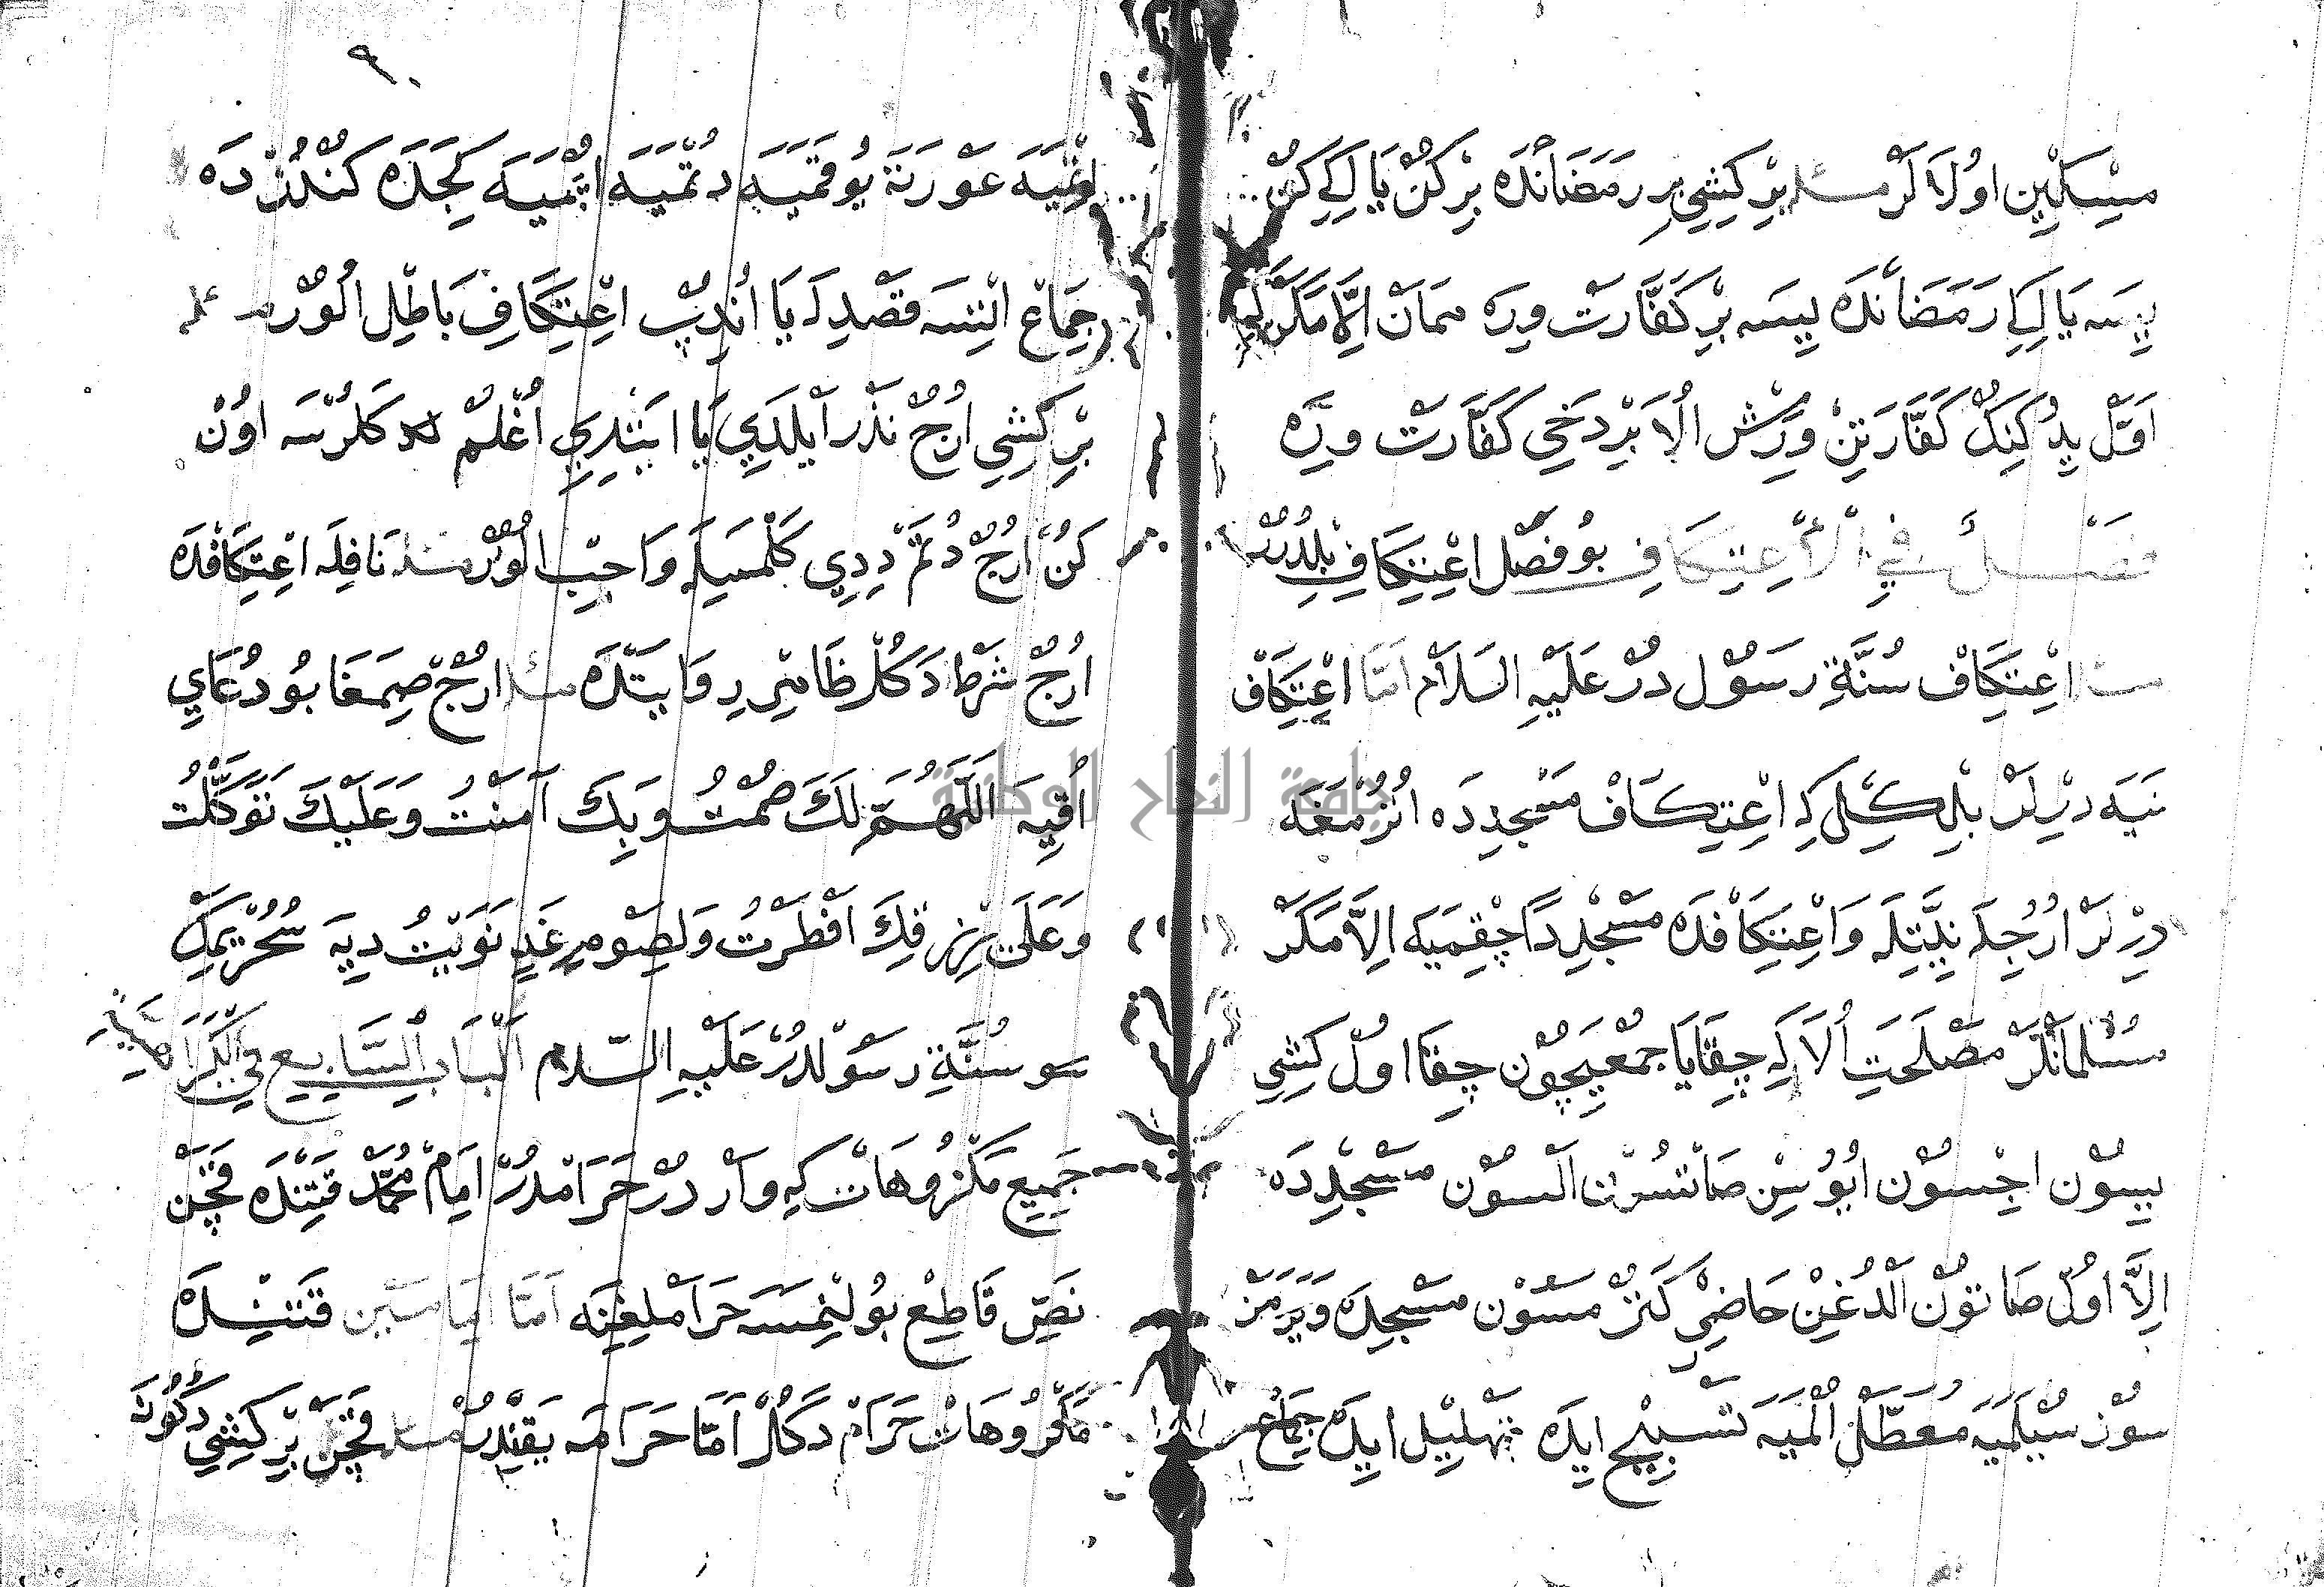 مِسْكِلَيِنْ اوُلَالَرْ مسئله بِرْ كِشِي بِر رَمَضَانْدَه بِرْ كُنْ يَا لِكِي كُنْ
يِيسَه يَا لِكِي رَمَضَانْدَه يِيسَه بِرْ كَفَّارَتْ وِرَه تمَانْ اِلَّا مَكَرْ
اَوَّل يِدُكِنِكْ كَفَّارَتِنْ وِرْمِشْ اُلَا بِرْ دَخِي كَفَّارَتْ وِرَه
فَصْلٌ فِي الْاِعْتِكَافِ بُو فَصْل اعْتِكَافِ بِلْدُرُرْ
اعْتِكَافْ سُنَّةِ رَسُوْل دُرْ عَلَيْهِ السَلَاْم اَمَّا اعْتِكَافْ
نَيَه دِرْلَرْ بِلْ كِلْ كِه اعْتِكَافْ مَسْجِدِدَه اُتُرْمَغَه
دِرْلَرْ اُرُجِلَه نِيَّتِلَه وَاعْتِكَافْدَه مَسْجِدِدَا چِقْمَيَه اِلَّا مَكَرْ
مُسُلمَانْلَرْ مَصْلَحَتِ اُلَا كِه چِقَا يَا جُمْعَيچُوْن چِقَا اوُل كِشِي
يِيسُوْن اِچْسُوْن اُيُوسِنْ صَاتسُوْن اَلسُوْن مَسْجِدِدَه
اِلَّا اوُل صَاتوُن اَلدُغِنْ حَاضِرْ كَتُرْمَسُوْن مَسْجِدَه وَيَرَمَزْ
سُوْز سُيْلَمَيَه مُعَطَّلْ اُلْمَيَه تَسْبِيْح ايدَه تهْلِيْل ايدَه جِمَاعْ
اِتْمَيَه عَوْرَتَه يُوقَمَيَه دُتْمَيَه اپْمَيَه كِجَدَه كُنْدُزْدَه
جِمَاعْ اتْسَه قَصْدِلَه يَا اُنْدِبْ اعْتِكَافِ بَاطِلْ اُلُوْرْ مسئله
بِرْ كِشِي اُرُجْ نَذْر اَيْلَدِي يَا اَيْتْدِي اُغْلُمْ كَلُرْسَه اوُنْ
كُنْ اُرُجْ دُتَمْ دِدِي كَلْمَسِيلَه وَاجِبْ اُلُوْرْ مسئله نَافِلَه اعْتِكَافْدَه
اُرُجْ شَرْط دَكُلْ ظَاهِرْ رِوَايَتْدَه مسئله اُرُجْ صِمَغَا بُو دُعَايِ
اُقِيَه اَللّٰهُمَّ لَكَ صُمْتُ وَبِكَ آمَنْتُ وَعَلَيْكَ تَوَكَّلْتُ
وَعَلَى رِزْقِكَ اَفْطَرْتُ وَلِصَوْمِ غَدٍ نَوَيْتُ دِيَه سُحُرْ يِمَكْ
سُنَّةِ رَسُوْلْدُرْ عَلَيْهِ السَّلَام اَلْبَابُ السَّابِعُ فِي الْكَرَاهِيَّةِ
جَمِيعِ مَكْرُوهَاتْ كِه وَاْر دُرْ حَرَامْدُرْ اِمَامْ مُحَمَّدْ قَتِنْدَه قَچَنْ
نَصِّ قَاطِعْ بُولِنْمَسَه حَرَامْلِغِنَه اَمَّا اِمَامَيْنِ قَتِنْدَه
مَكْرُوهَاتْ حَرَامْ دَكُلْ اَمَّا حَرَامَه يَقِنْدُرْ مسئله قَچَنْ بِرْ كِشِي دُكُونَه